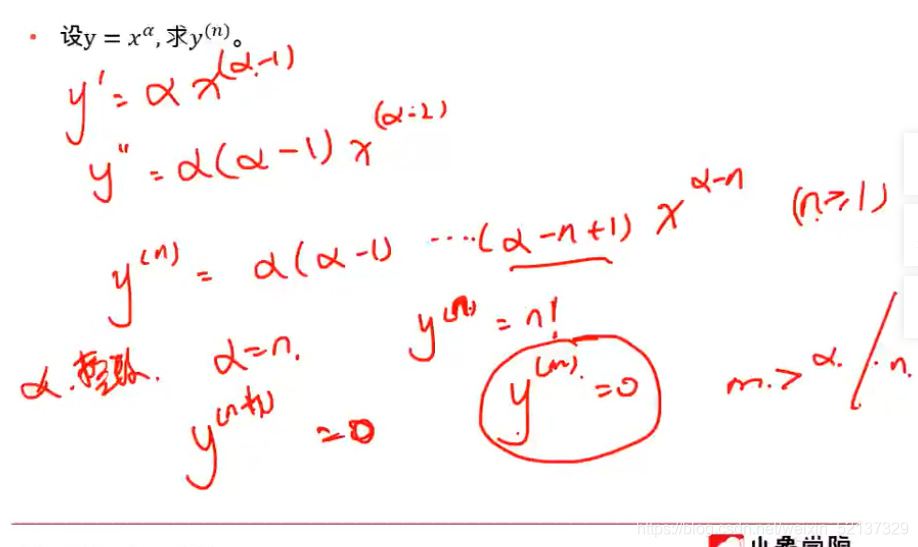 • 设y = x^α, 求y^(n)。
y' = α x^(α-1)
y" = α(α-1) x^(α-2)
y^(n) = α(α-1) ····(α-n+1) x^(α-n) (n≥1)
α.整数. α=n. y^(n) = n!
y^(n+1) = 0 y^(m) = 0 m. > α. / n.
https://blog.csdn.net/weixin_52137329
小象学院